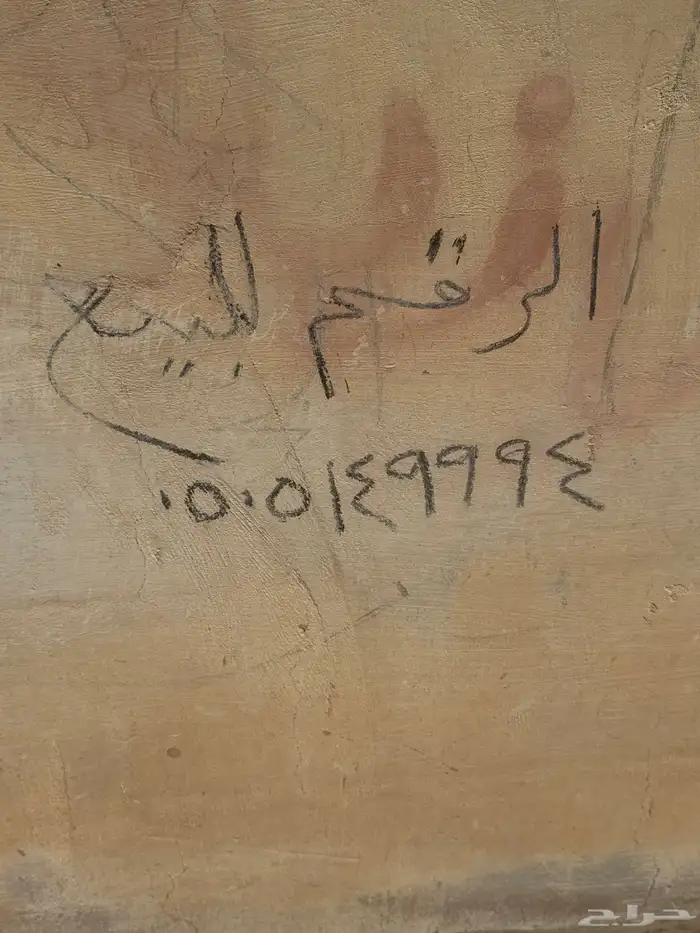 الرقم للبيع
٠٥٠٥١٤٩٩٩٤
حراج